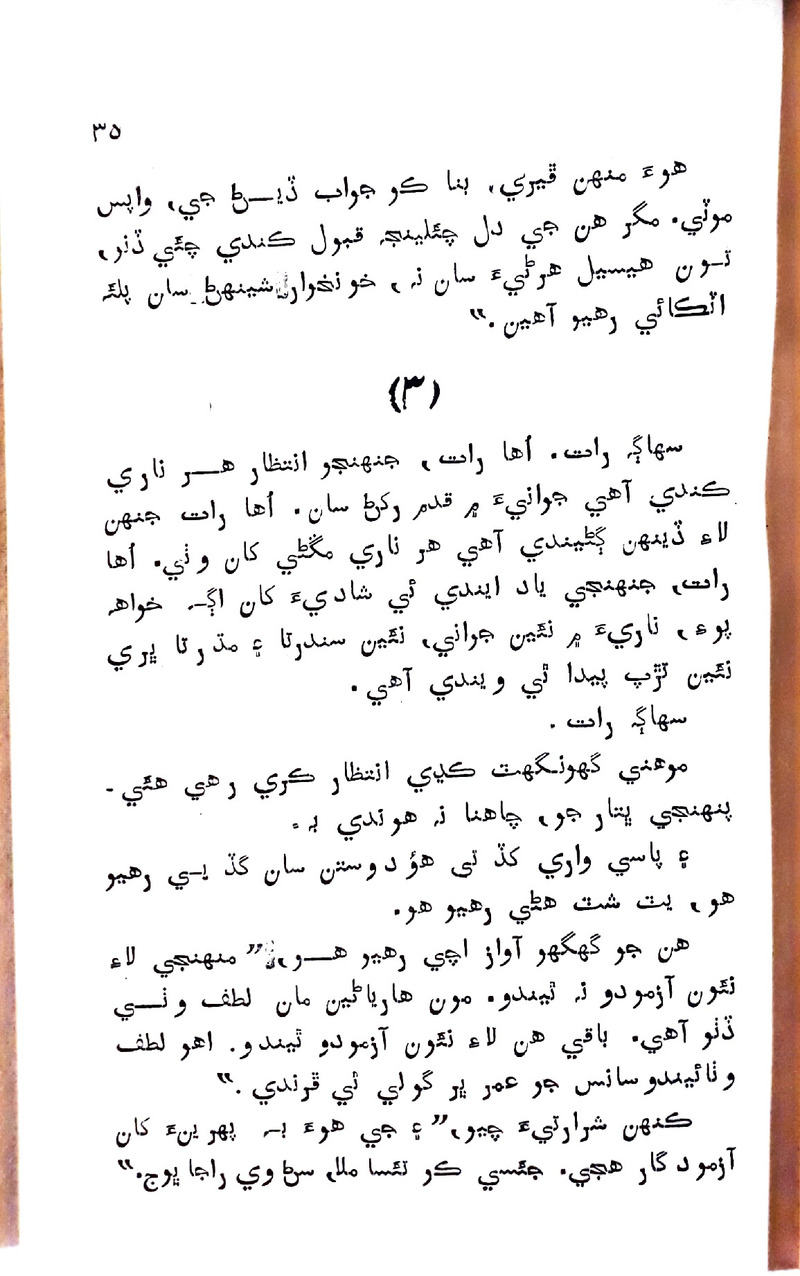 ٣٥
هوءَ منهن ڦيري، بنا ڪو جواب ڏيـــڻ جي، واپس
موٽي. مگر هن جي دل چئلينج قبول ڪندي چئي ڏنو،
تــون هيسيل هرڻيءَ سان نہ، خونخوار شينهڻ سان پلئہ
اٽڪائي رهيو آهين.“
(٣)
سهاڳہ رات. اُها رات، جنهنجو انتظار هـــر ناري
ڪندي آهي جوانيءَ ۾ قدم رکڻ سان. اُها رات جنهن
لاءِ ڏينهن ڳڻيندي آهي هر ناري مڱڻي کان وٺي. اُها
رات، جنهنجي ياد ايندي ئي شاديءَ کان اڳہ خواهہ
پوءِ، ناريءَ ۾ نئين جواني، نئين سندرتا ۽ مڌرتا ڀري
نئين تڙپ پيدا ٿي ويندي آهي.
سهاڳہ رات.
موهني گهونگهٽ ڪڍي انتظار ڪري رهي هئي-
پنهنجي ڀتار جو، چاهنا نہ هوندي بہ.
۽ پاسي واري کڏ تي هوُ دوستن سان گڏ پــي رهيو
هو، يٽ شٽ هڻي رهيو هو.
هن جو گهگهو آواز اچي رهيو هـــو، ”منهنجي لاءِ
نئون آزمودو نہ ٿيندو. مون هارياڻين مان لطف وٺـــي
ڏٺو آهي. باقي هن لاءِ نئون آزمودو ٿيندو. اهو لطف
وٺائيندوسانس جو عمر ڀر گولي ٿي ڦرندي.“
ڪنهن شرارتيءَ چيو، ”۽ جي هوءَ بہ پهرينءَ کان
آزمودگار هجي. جئسي ڪو تئسا ملا، سڻ وي راجا ڀوج.“